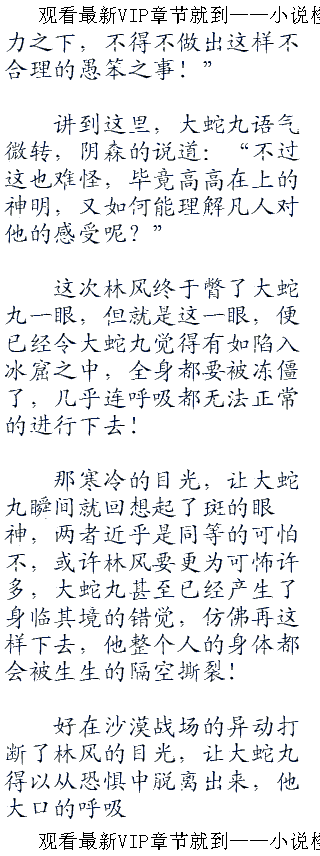 观看最新VIP章节就到——小说
力之下，不得不做出这样不
合理的愚笨之事！”
讲到这里，大蛇丸语气
微转，阴森的说道：“不过
这也难怪，毕竟高高在上的
神明，又如何能理解凡人对
他的感受呢？”
这次林风终于瞥了大蛇
丸一眼，但就是这一眼，便
已经令大蛇丸觉得有如陷入
冰窟之中，全身都要被冻僵
了，几乎连呼吸都无法正常
的进行下去！
那寒冷的目光，让大蛇
丸瞬间就回想起了斑的眼
神，两者近乎是同等的可怕
不，或许林风要更为可怖许
多，大蛇丸甚至已经产生了
身临其境的错觉，仿佛再这
样下去，他整个人的身体都
会被生生的隔空撕裂！
好在沙漠战场的异动打
断了林风的目光，让大蛇丸
得以从恐惧中脱离出来，他
大口的呼吸
观看最新VIP章节就到——小说